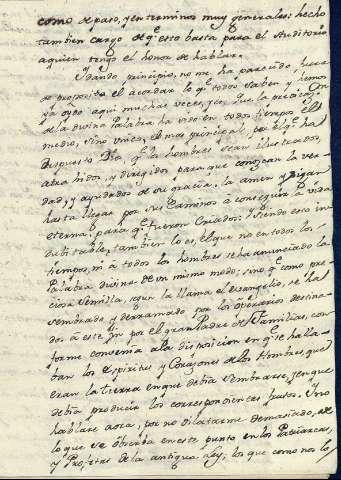 como de paso, y en terminos muy generales: hecho
tambien cargo de q.e esto basta para el Auditorio
a quien tengo el honor de hablar.
Y dando principio, no me ha parecido fuera
de proposito el acordar lo q.e todos saben y hemos
ya oydo aqui muchas veces, y es que la predicac.on
de la divina Palabra ha sido en todo tiempo el
medio, sino unico, el mas principal, por el q.e ha
dispuesto Dios q.e los hombres sean ilustrados,
atrahidos, y dirigidos para que conozcan la ver-
dad, y ayudados de su gracia, la amen y sigan
hasta llegar por sus caminos à conseguir la vida
eterna, para q.e fueron criados: Siendo esto in-
dubitable, tambien lo es, el que no en todos los
tiempos, ni à todos los hombres se ha anunciado la
Palabra divina de un mismo modo; sino q.e como pre-
ciosa semilla, segun la llama el evangelio, se ha
sembrado y derramado por los operarios destina-
dos à este fin por el gran Padre de Familias, con-
forme convenia ala disposicion en q.e se halla-
ban los espiritus y corazones de los Hombres, que
eran la tierra en que debia sembrarse, y en que
debia producir los correspondientes frutos. No
hablaré aora, por no dilatarme demasiado, de
lo que se observa en este punto en los Patriarcas,
y Profetas de la antigua Ley; los que como nos lo